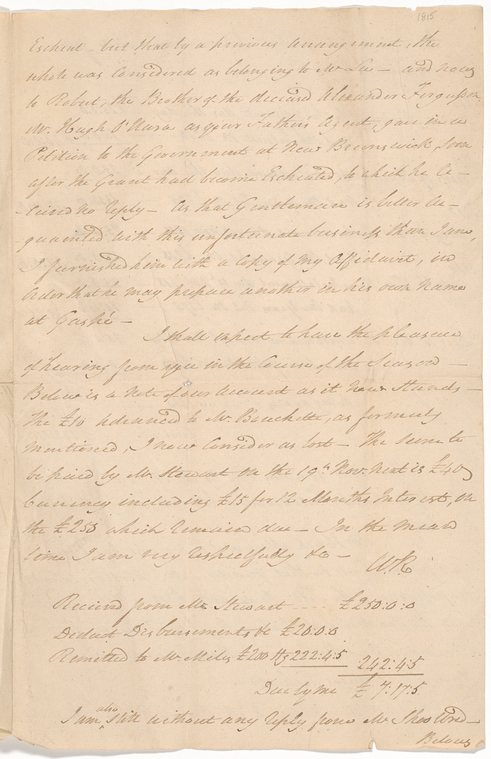 1815
Escheat - but that by a previous arrangement, the
whole was Considered as belonging to Mr Lee - and now
to Robert, the Brother of the deceased Alexander Ferguson
Mr. Hugh O'Hara as your Father's Agent, gave in a
Petition to the Government at New Brunswick, soon
after the Grant had become Escheated, to which he Re-
-ceived no Reply - As that Gentleman is better Ac-
quainted with this unfortunate business than I am,
I furnished him with a Copy of my Affidavit, in
Order that he may prepare another in his own Name
at Gaspé -
I shall expect to have the pleasure
of hearing from you in the Course of the Season -
Below is a Note of our Account as it Now Stands -
The £10 Advanced to Mr Bouchette, as formerly
mentioned, I now Consider as lost - The Sum to
be paid by Mr. Stewart on the 19th. Novr. Next is £40
Currency including £15 for 12 Months Interest, on
the £250 which Remains due - In the Mean
time I am very respectfully &c -
Received from Mr Stewart .... £250:0:0
Deduct Disbursements &c £20:0:0
Remitted to Mr Miles £200 Stg 222:4:5 242:4:5
Due by me £7:17:5
I am also Still without any Reply from Mr Thos
Below